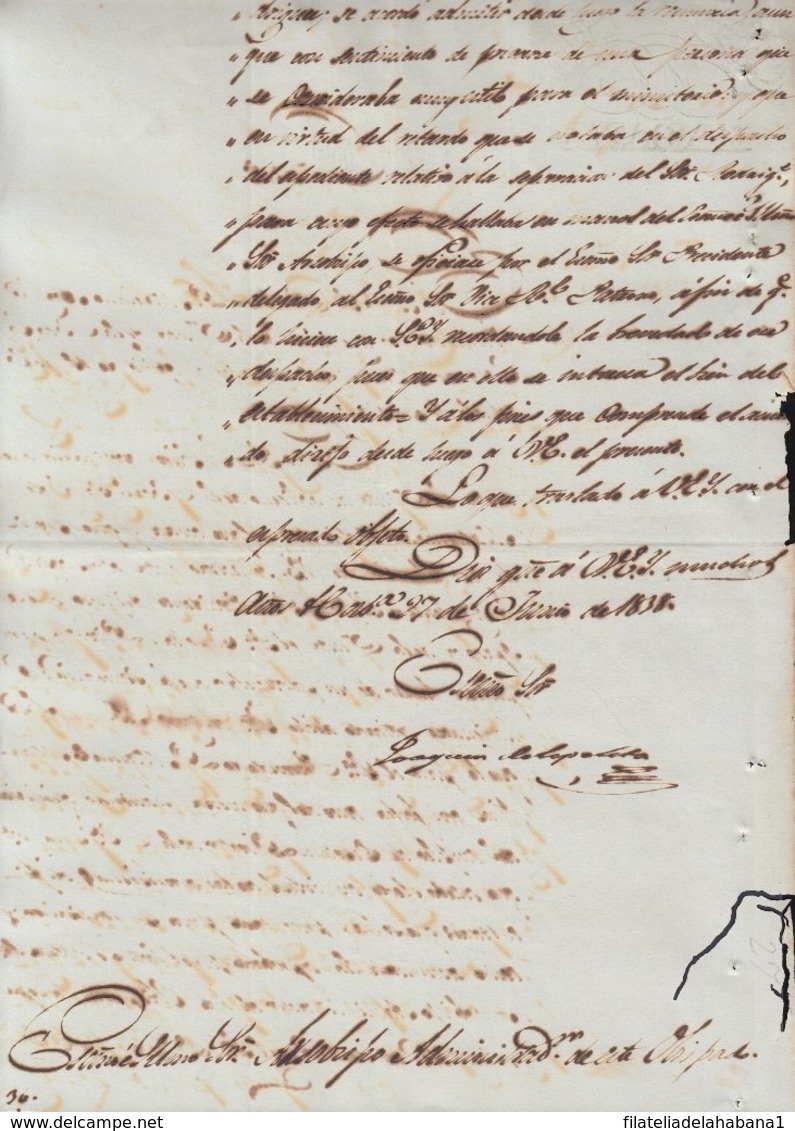 " se acordó admitir desde luego la renuncia, aun
" que con sentimiento de privarse de una persona que
" se consideraba muy util para el ministerio; y que
" en virtud del retardo que se notaba en el despacho
" del espediente relativo á la separacion del Sr. Rodrig.^z,
" para cuyo efecto se hallaba en manos del
" Sr. Arzobispo, se oficiase por el Escmo Sr. Presidente
" delegado, al Escmo Sr. Vice R.^l Patrono, á fin de q.^e
" lo con S.E.Y. la brevedad de su
" despacho, pues que en ello se interesa el bien del
" establecimiento = Y á los fines que comprende el acuer
" do, dirijo desde luego á V.E. el presente.
Lo que traslado á V.E.Y. con el
espresado objeto.
Dios gue á V.E.Y. muchos
años Hab.^a 27 de Junio de 1838.
Escmo Sr.
Joaquin
Escmo é Yllmo Sr. Arzobispo Administrad.^or de este Obispad.
36.
filateliadelahabana1